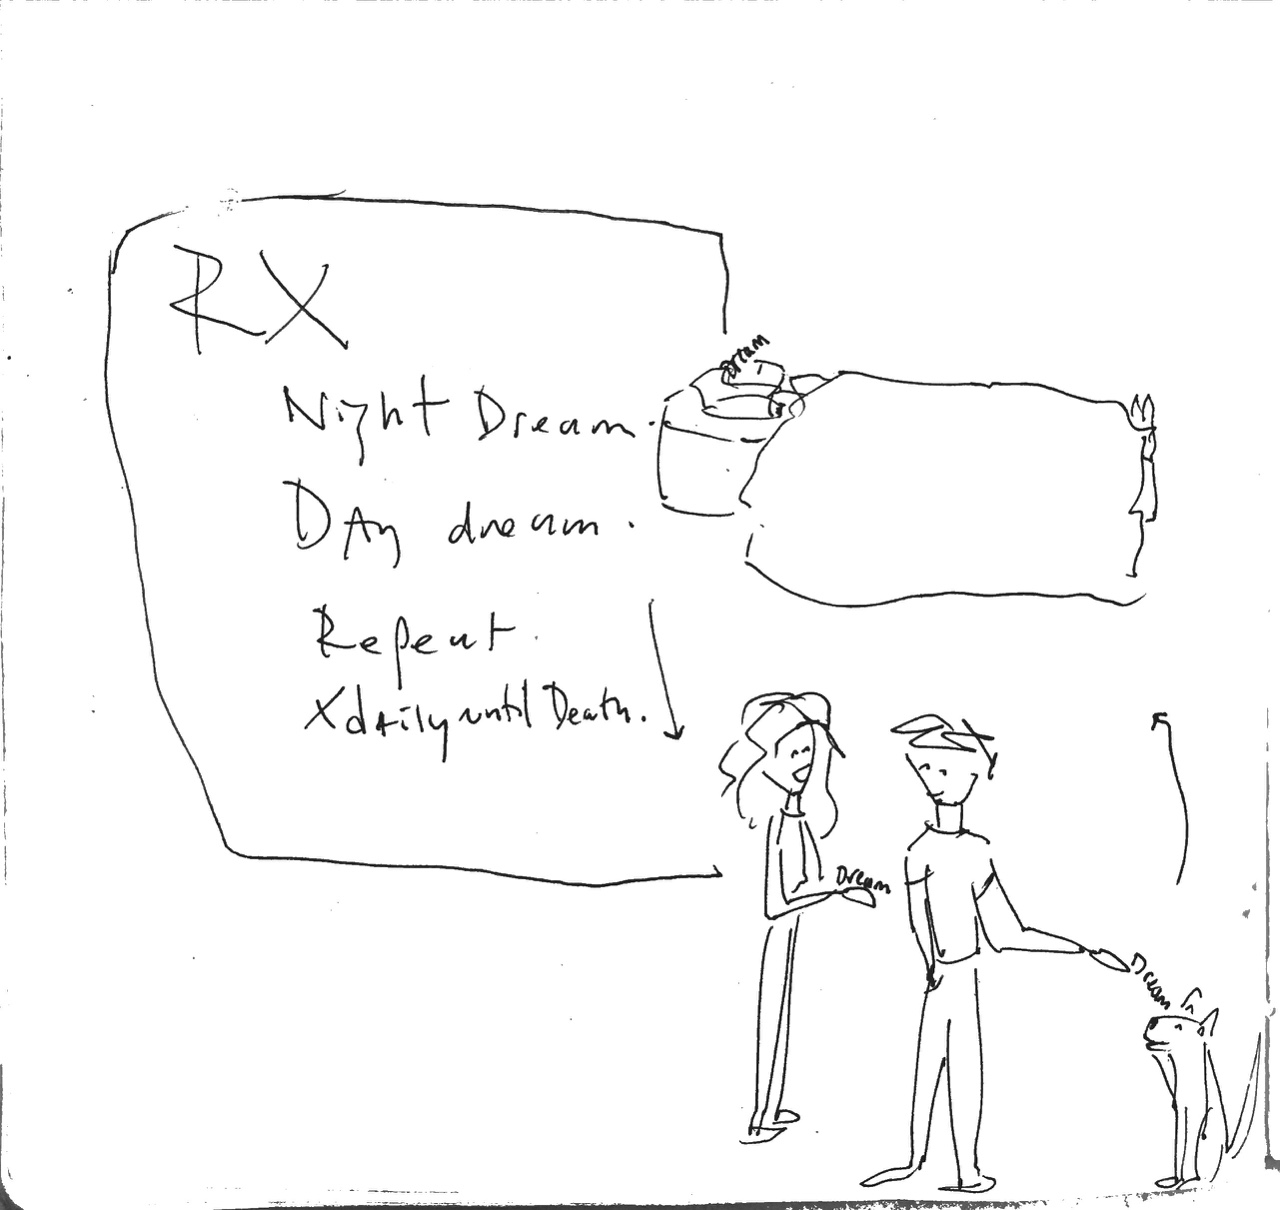 RX
Night Dream.
DAy dream.
Repeat.
X daily until Death.
Dream
Dream
Dream